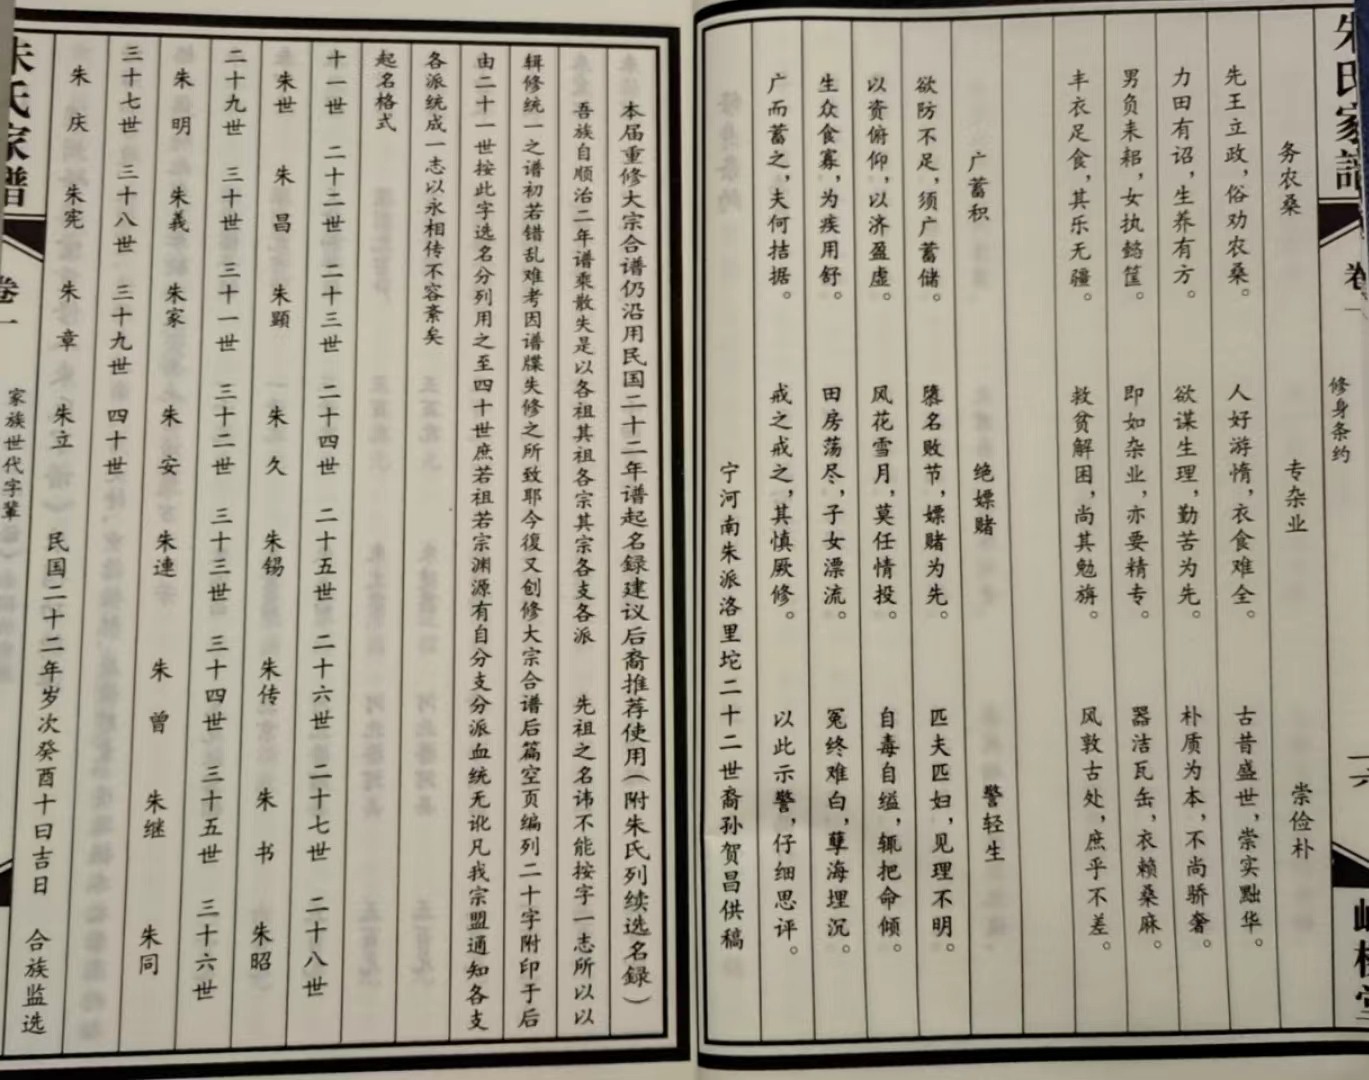 朱氏家譜 卷一 修身条约
务农桑 专杂业 崇俭朴
先王立政，俗劝农桑。 人好游惰，衣食难全。 古昔盛世，崇实黜华。
力田有诏，生养有方。 欲谋生理，勤苦为先。 朴质为本，不尚骄奢。
男负耒耜，女执懿筐。 即如杂业，亦要精专。 器洁瓦缶，衣赖桑麻。
丰衣足食，其乐无疆。 救贫解困，尚其勉旃。 风敦古处，庶乎不差。
广蓄积 绝嫖赌 警轻生
欲防不足，须广蓄储。 隳名败节，嫖赌为先。 匹夫匹妇，见理不明。
以资俯仰，以济盈虚。 风花雪月，莫任情投。 自毒自缢，辄把命倾。
生众食寡，为疾用舒。 田房荡尽，子女漂流。 冤终难白，孽海埋沉。
广而蓄之，夫何拮据。 戒之戒之，其慎厥修。 以此示警，仔细思评。
宁河南朱派洛里坨二十二世裔孙贺昌供稿
本届重修大宗合谱仍沿用民国二十二年谱起名録建议后裔推荐使用（附朱氏列续选名録）
吾族自顺治二年谱乘散失是以各祖其祖各宗其宗各支各派 先祖之名讳不能按字一志所以以
辑修统一之谱初若错乱难考因谱牒失修之所致耶今復又创修大宗合谱后篇空页编列二十字附印于后
由二十一世按此字选名分列用之至四十世庶若祖若宗渊源有自分支分派血统无讹凡我宗盟通知各支
各派统成一志以永相传不容紊矣
起名格式
十一世 二十二世 二十三世 二十四世 二十五世 二十六世 二十七世 二十八世
朱世 朱昌 朱顯 朱久 朱锡 朱传 朱书 朱昭
二十九世 三十世 三十一世 三十二世 三十三世 三十四世 三十五世 三十六世
朱明 朱義 朱家 朱安 朱連 朱曾 朱继 朱同
三十七世 三十八世 三十九世 四十世
朱庆 朱宪 朱章 朱立
民国二十二年岁次癸酉十曰吉日 合族监选
朱氏家谱 卷一 家族世代字辈